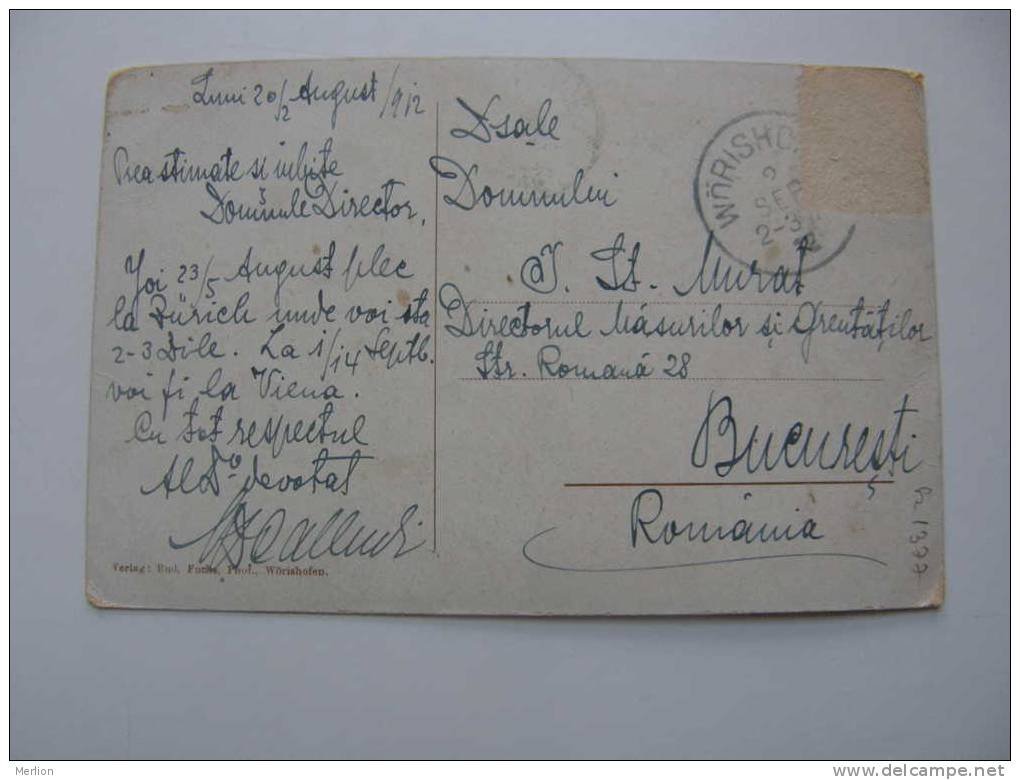 Luni 20/2 August/912
Prea stimate si iubite
Domnule Director,
Joi 23/5 August plec
la Zürich unde voi sta
2-3 Zile. La 1/14 Septb.
voi fi la Viena.
Cu tot respectul
Al Dv devotat
Verlag: Rud. Fuchs, Phot., Wörishofen.
Dsale
Domnului
I. St. Murat
Directorul Măsurilor și Greutăților
Str. Romană 28
București
România
WÖRISHO
2 SEP
1377
Merlion
delcampe.net